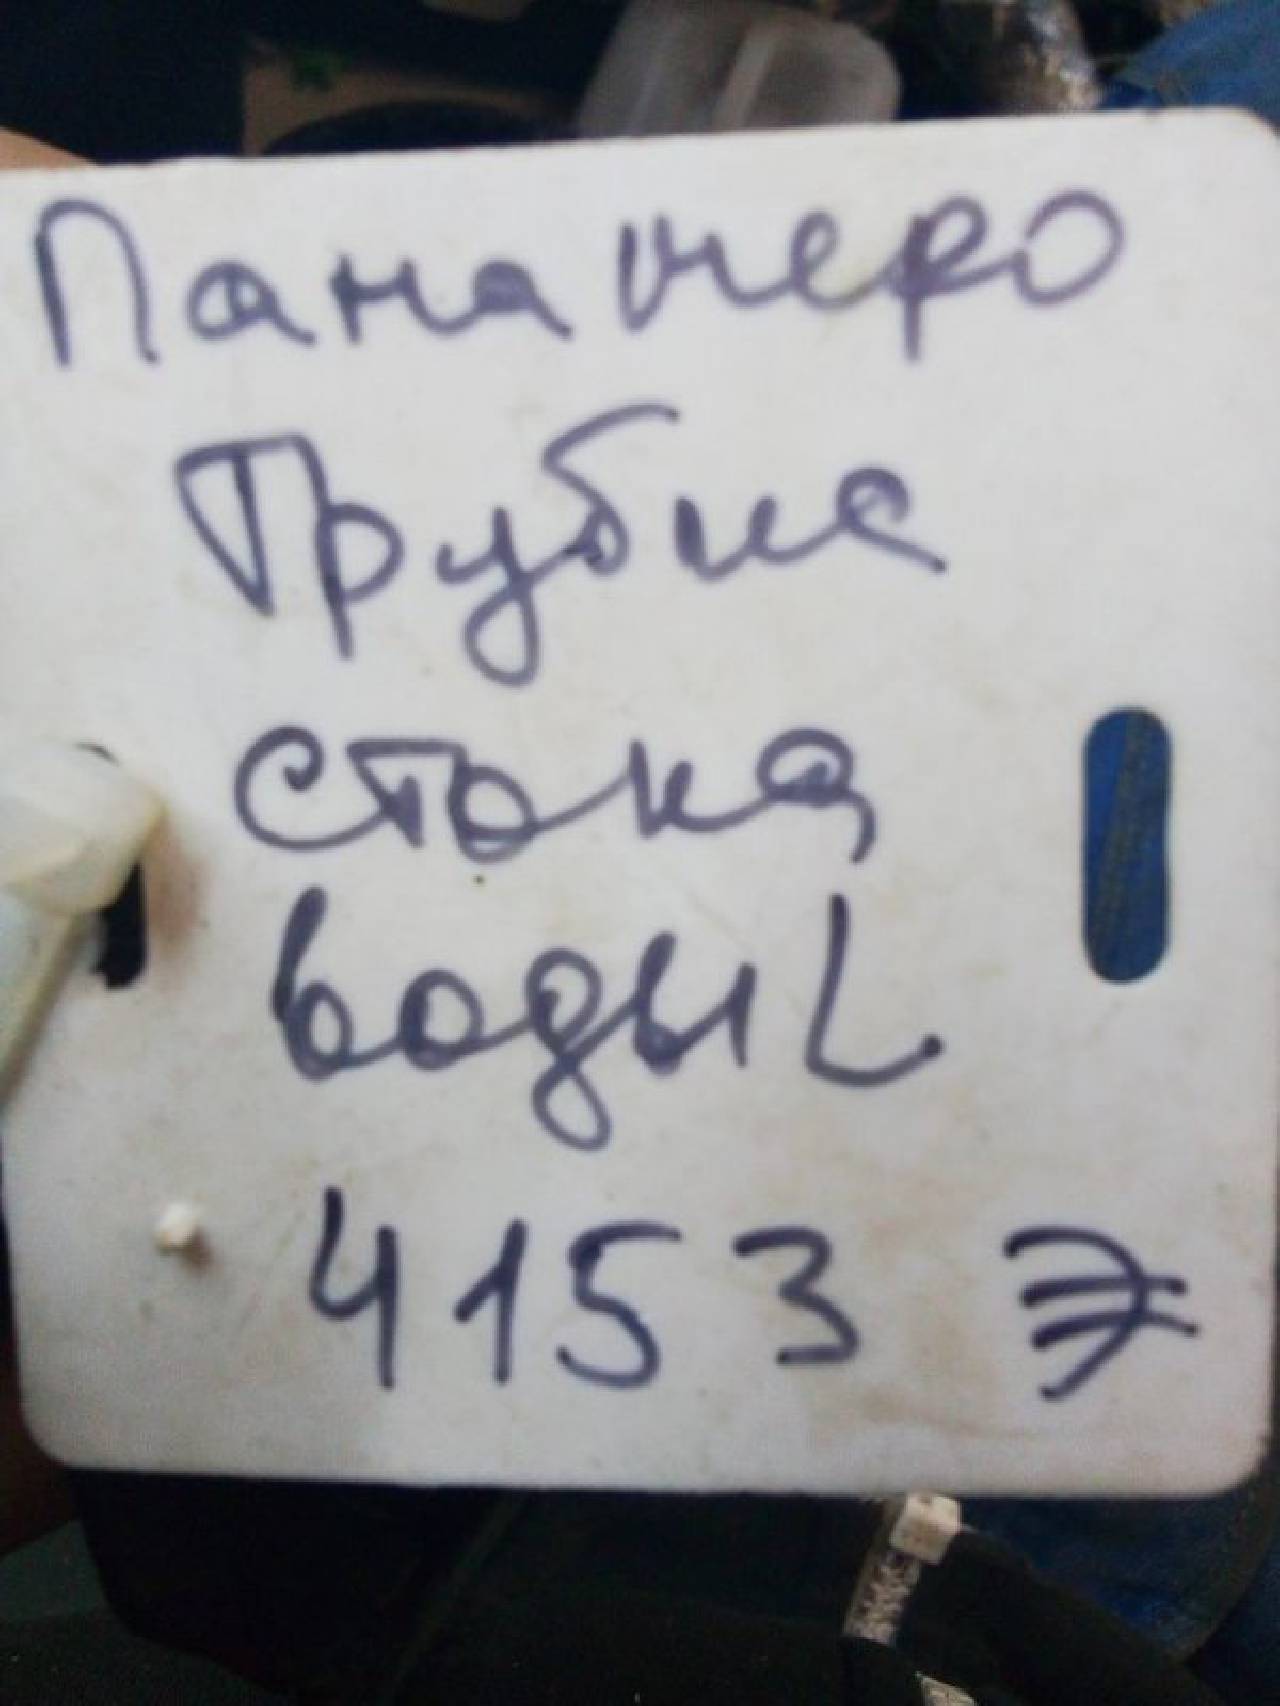 Панамеро
Трубка
стока
воды L
4153 Э